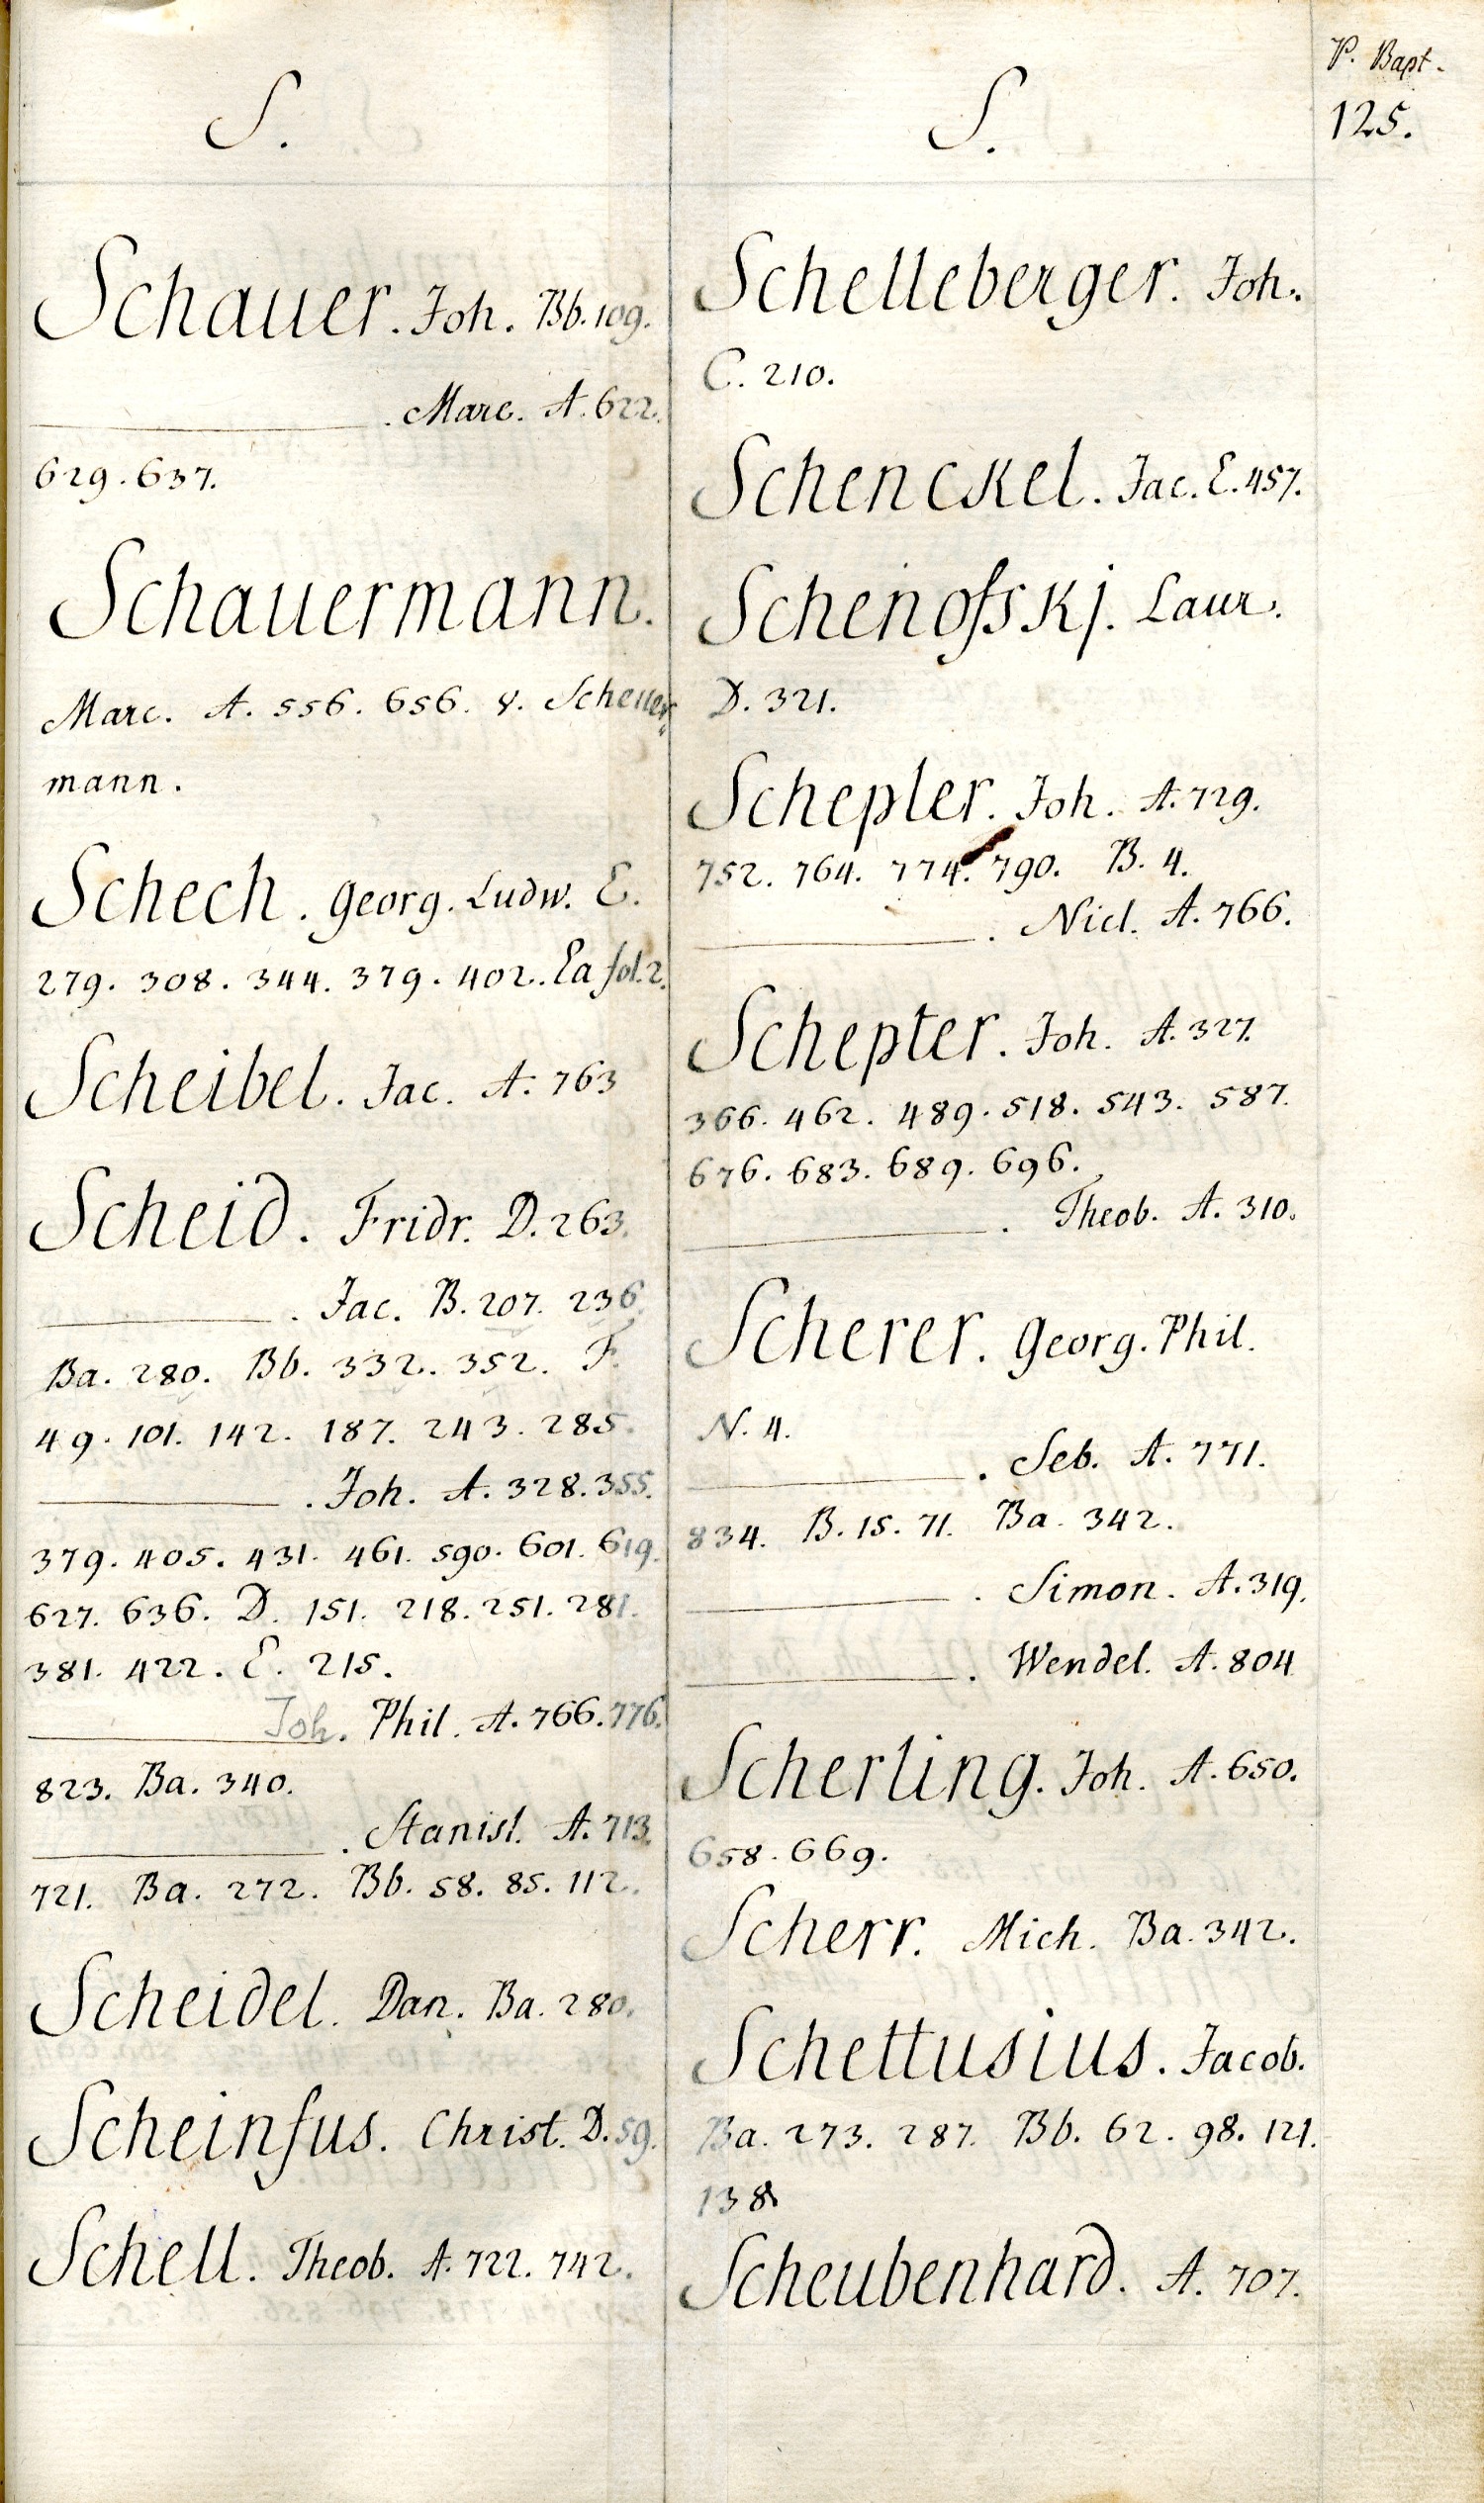 P. Bapt.
125.
S.
Schauer. Joh. Bb. 109.
. Marc. A. 622.
629. 637.
Schauermann.
Marc. A. 556. 656. v. Scheuer„
mann.
Schech. Georg. Ludw. E.
279. 308. 344. 379. 402. Ea fol. 2.
Scheibel. Jac. A. 763
Scheid. Fridr. D. 263.
. Jac. B. 207. 236.
Ba. 280. Bb. 332. 352. F.
49. 101. 142. 187. 243. 285.
. Joh. A. 328. 355.
379. 405. 431. 461. 590. 601. 619.
627. 636. D. 151. 218. 251. 281.
381. 422. E. 215.
Joh. Phil. A. 766. 776.
823. Ba. 340.
. Stanisl. A. 713.
721. Ba. 272. Bb. 58. 85. 112.
Scheidel. Dan. Ba. 280.
Scheinfus. Christ. D. 59.
Schell. Theob. A. 722. 742.
S.
Schelleberger. Joh.
C. 210.
Schenckel. Jac. E. 457.
Schenofskj. Laur.
D. 321.
Schepler. Joh. A. 729.
752. 764. 774. 790. B. 4.
. Nicl. A. 766.
Schepter. Joh. A. 327.
366. 462. 489. 518. 543. 587.
676. 683. 689. 696.
. Theob. A. 310.
Scherer. Georg. Phil.
N. 4.
. Seb. A. 771.
834. B. 15. 71. Ba. 342.
. Simon. A. 319.
. Wendel. A. 804
Scherling. Joh. A. 650.
658. 669.
Scherr. Mich. Ba. 342.
Schettusius. Jacob.
Ba. 273. 287. Bb. 62. 98. 121.
138.
Scheubenhard. A. 707.